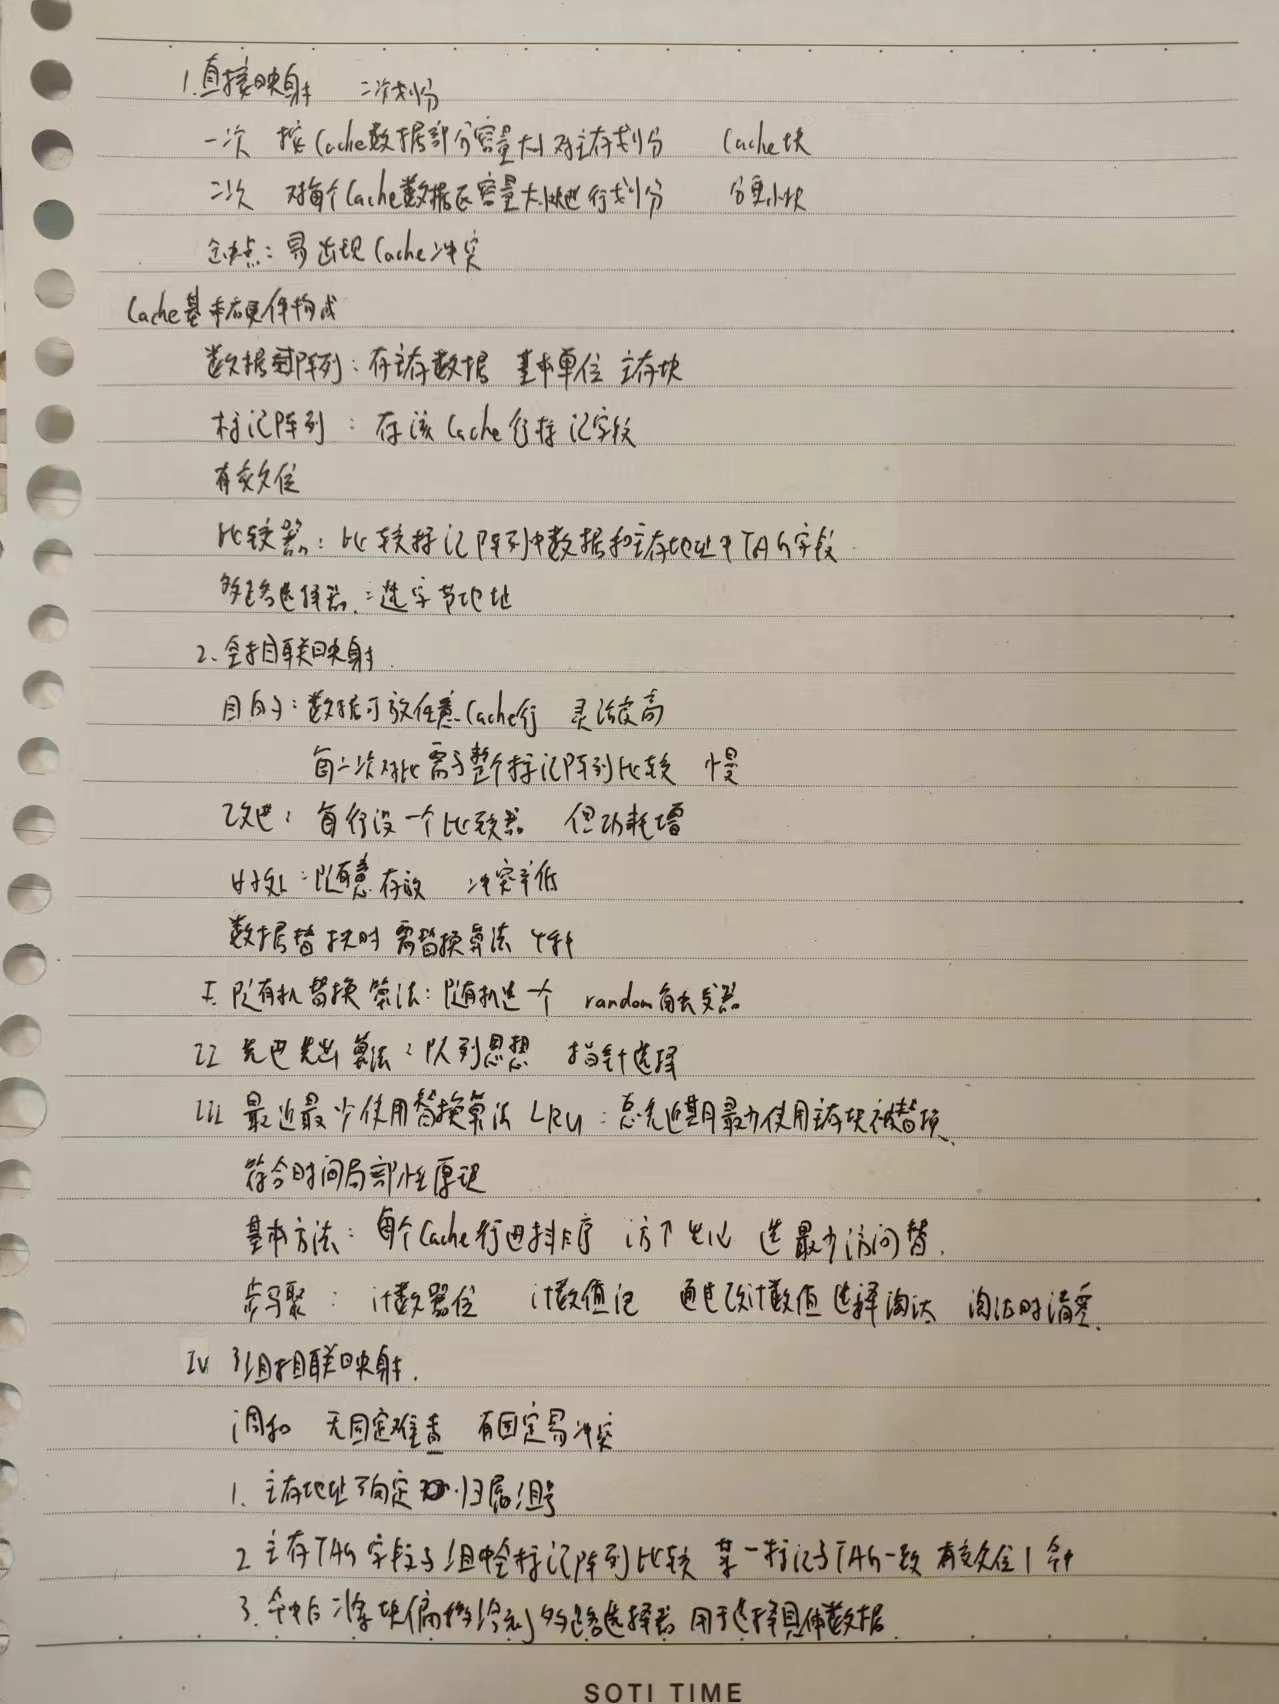 1. 直接映射 二次划分
一次 按Cache数据部分容量大小对主存划分 Cache块
二次 对每个Cache数据区容量大小进行划分 分更小块
缺点:易出现Cache冲突
Cache基本硬件构成
数据阵列:存主存数据 基本单位 主存块
标记阵列:存该Cache行标记字段
有效位
比较器:比较标记阵列中数据和主存地址中TAG字段.
多路选择器:选字节地址
2. 全相联映射.
目的:数据可放任意Cache行 灵活度高
每一次对比需与整个标记阵列比较 慢
改进:每行设一个比较器 但功耗增
好处:随意存放 冲突率低
数据替换时 需替换算法
I. 随机替换算法:随机选一个 random 触发器
II 先进先出算法:队列思想 指针选择
III 最近最少使用替换算法 LRU:总先近期最少使用主存块被替换.
符合时间局部性原理
基本方法:每个Cache行进排序 选最少访问替.
步骤:计数器位 计数值记 通过改计数值选择淘汰 淘汰时清零.
IV 组相联映射.
调和 无固定难查 有固定易冲突
1. 主存地址 归属组号
2 主存TAG字段与组中全标记阵列比较 某一标记与TAG一致 有效位1 命中
3. 命中后 将块偏移给到多路选择器 用于选择具体数据.
SOTI TIME